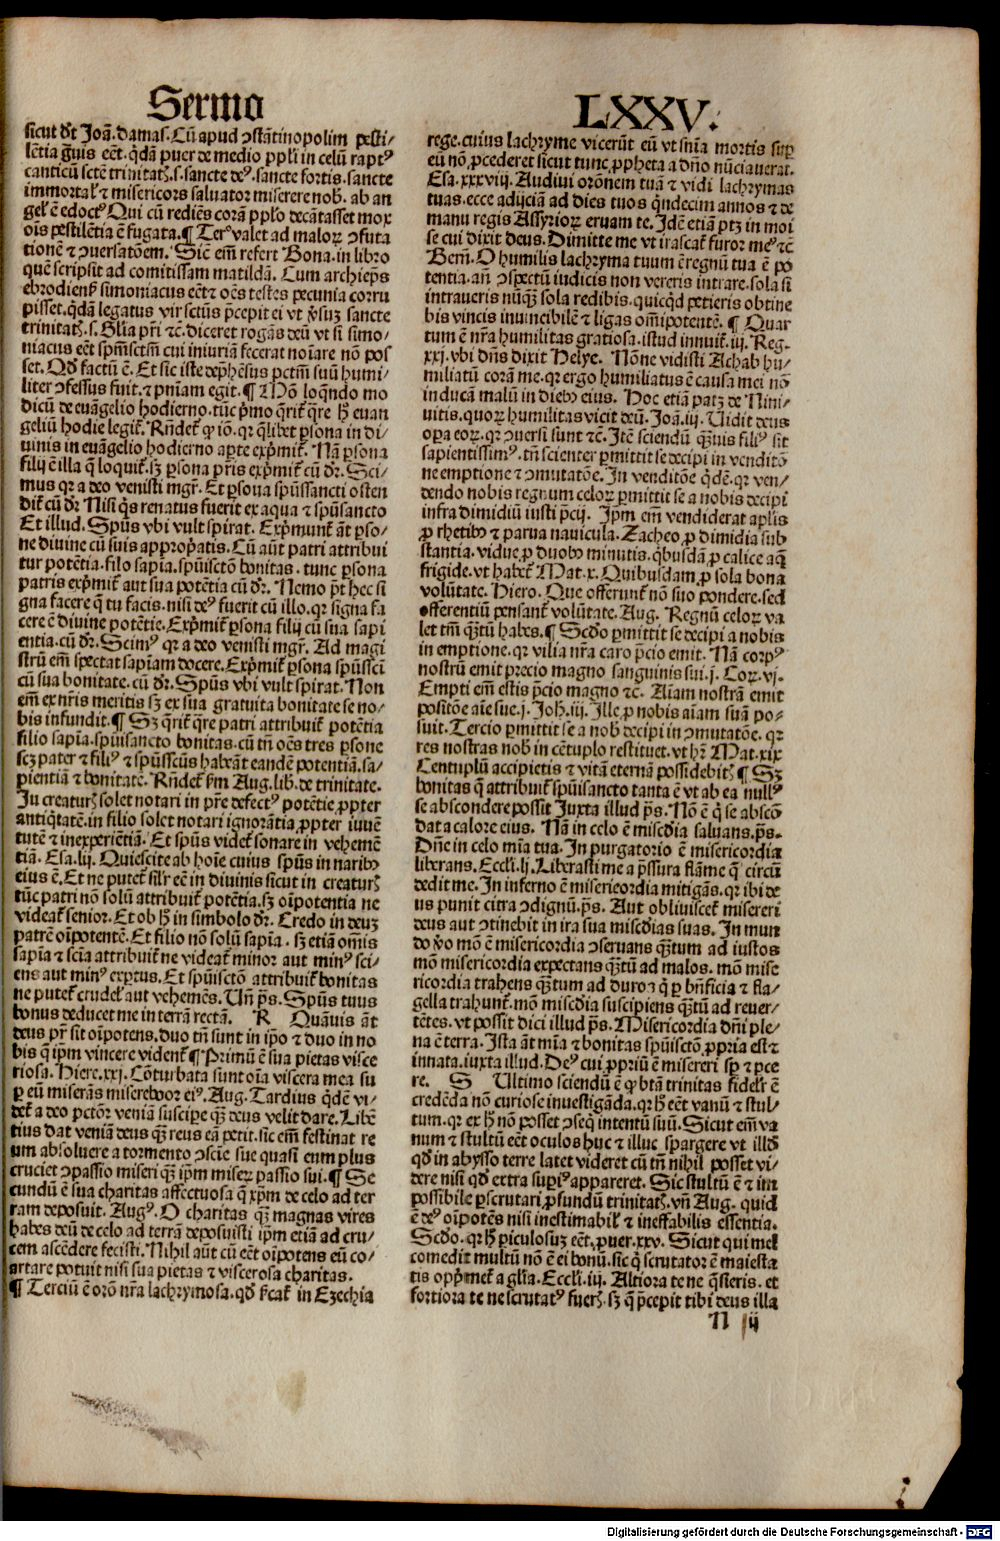 Sermo
sicut dr̄t Joā. damas. Cū apud ꝯstātinopolim pesti-
lētia gͣuis eēt. qͥdā puer de medio ppl̓i in celū raptꝰ
canticū sctē trinitatꝭ. s. sancte deꝰ. sancte fortis. sancte
immortal̓ ⁊ misericors saluator miserere nob̓. ab an
gel̓ ē edoctꝰ Qui cū rediēs corā ppl̓o decātasset mox
oīs pestilētia ē fugata. ¶ Terͦ valet ad maloꝝ ꝯfuta
tionē ⁊ ꝯuersatōem. Sic em̄ refert Bona. in libro
quē scripsit ad comitissam matildā. Cum archiep̄s
ebrodien̄ simoniacus eēt ⁊ oēs testes pecunia corru
pisset. qͥdā legatus vir sctūs p̄cepit ei vt v̓suꝫ sancte
trinitatꝭ. s. Glīa pr̄i ⁊c̄. diceret rogās deū vt si simo-
niacus eēt spm̄sctm̄ cui iniuriā fecerat noīare nō pos
set. Qd̓ factū ē. Et sic iste dep̄hēsus pctm̄ suū humi-
liter ꝯfessus fuit. ⁊ pn̄iam egit. ¶ Mō loqn̄do mo
dicū de euāgelio hodierno. tūc pͥmo q̄ritͬ qͣre h̓ euan
geliū hodie legitͬ. Rn̄detͬ ꝙ iō. qꝛ qͥlibet ꝑsona in di-
uinis in euāgelio hodierno aꝑte expͥmitͬ. Nā ꝑsona
filij ē illa q̄ loquitͬ. sꝫ ꝑsona pr̄is expͥmitͬ cū dr̄. Sci-
mus qꝛ a deo venisti mgr̄. Et ꝑsona spūssancti osten
ditͬ cū dr̄ Nisi qͥs renatus fuerit ex aqua ⁊ spūsancto
Et illud. Spūs vbi vult spirat. Expͥmuntͬ āt ꝑso-
ne diuine cū suis appropͥatis. Cū aūt patri attribui
tur potētia. filo sapīa. spūisctō bonitas. tunc ꝑsona
patris expͥmitͬ aut sua potētia cū dr̄. Nemo p̄t hec si
gna facere q̄ tu facis. nisi deꝰ fuerit cū illo. qꝛ signa fa
cere ē diuine potētie. Expͥmitͬ ꝑsona filij cū sua sapi
entia. cū dr̄. Scimꝰ qꝛ a deo venisti mgr̄. Ad magi
strū em̄ spectat sapīam docere. Expͥmitͬ ꝑsona spūsscī
cū sua bonitate. cū dr̄. Spūs vbi vult spirat. Non
em̄ ex nr̄is meritis sꝫ ex sua gratuita bonitate se no-
bis infundit. ¶ Sꝫ q̄ritͬ qͣre patri attribuitͬ potētia
filio sapīa. spūisancto bonitas. cū tn̄ oēs tres ꝑsone
scꝫ pater ⁊ filiꝰ ⁊ spūsscūs habeāt eandē potentiā. sa-
pientiā ⁊ bonitatē. Rn̄detͬ ẜm Aug. lib. de trinitate.
In creaturꝭ solet notari in pr̄e defectꝰ potētie ꝓpter
antiqͥtatē. in filio solet notari ignorātia ꝓpter iuuē
tutē ⁊ inexperiētiā. Et spūs videtͬ sonare in vehemē
tiā. Esa. lij. Quiescite ab hoīe cuius spūs in naribꝰ
eius ē. Et ne putetͬ sil̓r eē in diuinis sicut in creaturꝭ
tūc patri nō solū attribuitͬ potētia. sꝫ oīpotentia ne
videatͬ senior. Et ob h̓ in simbolo dr̄. Credo in deuꝫ
patrē oīpotentē. Et filio nō solū sapīa. sꝫ etiā om̄is
sapīa ⁊ scīa attribuitͬ ne videatͬ minor aut minꝰ sci-
ens aut minꝰ exꝑtus. Et spūisctō attribuitͬ bonitas
ne putetͬ crudel̓ aut vehemēs. Un̄ ps̄. Spūs tuus
bonus deducet me in terrā rectā. R Quāuis āt
deus pr̄ sit oīpotens. duo tn̄ sunt in ip̄o ⁊ duo in no
bis q̄ ip̄m vincere videntͬ ¶ Primū ē sua pietas visce
riosa. Hiere. xxj. Cōturbata sunt oīa viscera mea su
ꝑ eū miserās miserebor eiꝰ. Aug. Tardius qͥdē vi-
detͬ a deo pctōr veniā suscipe qͣꝫ deus velit dare. Libē
tius dat veniā deus qͣꝫ reus eā petit. sic em̄ festinat re
um absoluere a tormento ꝯsciē sue quasi eum plus
cruciet ꝯpassio miseri qͣꝫ ip̄m miseꝝ passio sui. ¶ Se
cundū ē sua charitas affectuosa q̄ xp̄m de celo ad ter
ram deposuit. Augꝰ. O charitas qͣꝫ magnas vires
habes deū de celo ad terrā deposuisti ip̄m etiā ad cru-
cem ascēdere fecisti. Nihil aūt cū eēt oīpotens eū co-
artare potuit nisi sua pietas ⁊ viscerosa charitas.
¶ Terciū ē orō nr̄a lachrymosa. qd̓ ptͣ in Ezechia
LXXV.
rege. cuius lachryme vicerūt eū vt snīa mortis suꝑ
eū nō ꝓcederet sicut tunc ꝓpheta a dn̄o nūciauerat.
Esa. xxxviij. Audiui orōnem tuā ⁊ vidi lachrymas
tuas. ecce adijciā ad dies tuos qͥndecim annos ⁊ de
manu regis Assyrioꝝ eruam te. Idē etiā ptꝫ in moi
se cui dixit deus. Dimitte me vt irascatͬ furor meꝰ ⁊c̄
Bern̄. O humilis lachryma tuum ē regnū tua ē po
tentia. an̄ ꝯspectū iudicis non vereris intrare. sola si
intraueris nūqͣꝫ sola redibis. quicqͥd petieris obtine
bis vincis inuincibilē ⁊ ligas om̄ipotentē. ¶ Quar
tum ē nr̄a humilitas gratiosa. istud innuitͬ. iij. Reg.
xxj. vbi dn̄s dixit Helye. Nōne vidisti Achab hu-
miliatū corā me. qꝛ ergo humiliatus ē causa mei nō
inducā malū in diebꝰ eius. Hoc etiā patꝫ de Nini-
uitis. quoꝝ humilitas vicit deū. Joā. iij. Uidit deus
oꝑa eoꝝ. qꝛ ꝯuersi sunt ⁊c̄. Itē sciendū qͣꝫuis filiꝰ sit
sapientissimꝰ. tn̄ scienter ꝑmittit se decipi in venditō
ne emptione ⁊ ꝯmutatōe. In venditōe qͥdē. qꝛ ven-
dendo nobis regnum celoꝝ ꝑmittit se a nobis decipi
infra dimidiū iusti p̄cij. Ip̄m em̄ vendiderat apl̓is
ꝓ rhetibꝰ ⁊ parua nauicula. Zacheo ꝓ dimidia sub
stantia. vidue ꝓ duobꝰ minutis. qͥbusdā ꝓ calice aq̄
frigide. vt habetͬ Mat. x. Quibusdam ꝓ sola bona
volūtate. Hiero. Que offeruntͬ nō suo pondere. sed
offerentiū pensantͬ volūtate. Aug. Regnū celoꝝ va
let tm̄ qͣꝫtū habes. ¶ Scd̓o ꝑmittit se decipi a nobis
in emptione. qꝛ vilia nr̄a caro p̄cio emit. Nā corpꝰ
nostrū emit precio magno sanguinis sui. j. Coꝝ. vj.
Empti em̄ estis p̄cio magno ⁊c̄. Aīam nostrā emit
positōe aīe sue. j. Joh̓. iij. Ille ꝓ nobis aīam suā po-
suit. Tercio ꝑmittit se a nob̓ decipi in ꝯmutatōe. qꝛ
res nostras nob̓ in cētuplo restituet. vt hr̄ Mat. xix
Centuplū accipietis ⁊ vitā eternā possidebitꝭ ¶ Sꝫ
bonitas q̄ attribuitͬ spūisancto tanta ē vt ab ea nullꝰ
se abscondere possit Juxta illud ps̄. Nō ē qͥ se abscō
dat a calore eius. Nā in celo ē miscd̓ia saluans. ps̄.
Dn̄e in celo mīa tua. In purgatorio ē misericordia
liberans. Eccl̓i. lj. Liberasti me a p̄ssura flāme q̄ circū
dedit me. In inferno ē misericordia mitigās. qꝛ ibi de
us punit citra ꝯdignū. ps̄. Aut obliuiscetͬ misereri
deus aut ꝯtinebit in ira sua miscd̓ias suas. In mun
do v̓o mō ē misericordia ꝯseruans qͣꝫtum ad iustos
mō misericordia expectans qͣꝫtū ad malos. mō mise
ricordia trahens qͣꝫtum ad duros qͥ ꝑ bn̄ficia ⁊ fla-
gella trahuntͬ. mō miscd̓ia suscipiens qͣꝫtū ad reuer-
tētes. vt possit dici illud ps̄. Misericordia dn̄i ple-
na ē terra. Ista āt mīa ⁊ bonitas spūisctō ꝓpria est ⁊
innata. iuxta illud. Deꝰ cui ꝓpriū ē misereri sꝑ ⁊ ꝑce
re. S Ultimo sciendū ē ꝙ btā trinitas fidel̓r ē
credēda nō curiose inuestigāda. qꝛ h̓ eēt vanū ⁊ stul-
tum. qꝛ ex h̓ nō posset ꝯseqͥ intentū suū. Sicut em̄ va
num ⁊ stultū eēt oculos huc ⁊ illuc spargere vt illd̓
qd̓ in abysso terre latet videret cū tn̄ nihil posset vi-
dere nisi qd̓ extra supiꝰ appareret. Sic stultū ē ⁊ im
possibile ꝑscrutari ꝓfundū trinitatꝭ. vn̄ Aug. quid
ē deꝰ oīpotēs nisi inestimabil̓ ⁊ ineffabilis essentia.
Scd̓o. qꝛ h̓ ꝑiculosuꝫ eēt. ꝓuer. xxv. Sicut qui mel
comedit multū nō ē ei bonū. sic qͥ scrutator ē maiesta
tis oppͥmetͬ a gl̓ia. Eccl̓i. iij. Altiora te ne q̄sieris. et
fortiora te ne scrutatꝰ fuerꝭ. sꝫ q̄ p̄cepit tibi deus illa
N ij
Digitalisierung gefördert durch die Deutsche Forschungsgemeinschaft - DFG